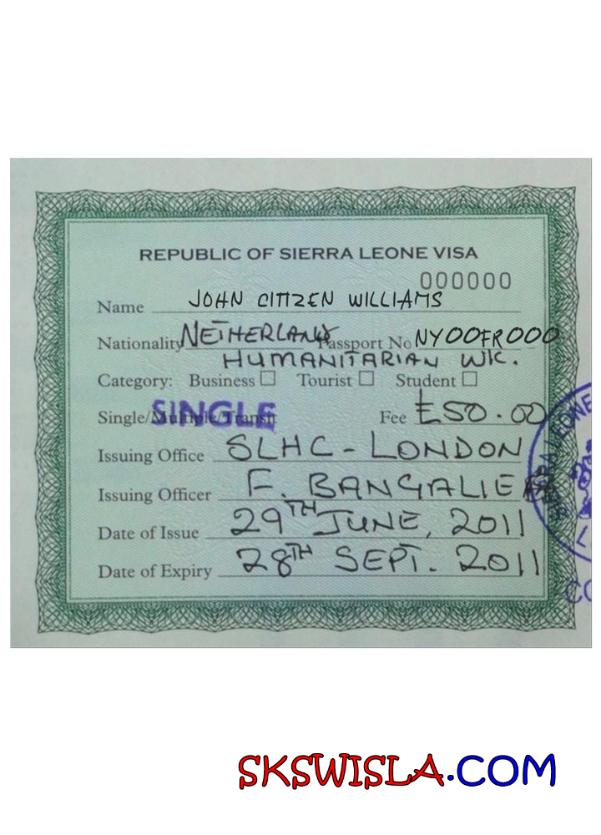 REPUBLIC OF SIERRA LEONE VISA
000000
Name JOHN CITIZEN WILLIAMS
Nationality NETHERLAND Passport No NY00FR000
HUMANITARIAN WK.
Category: Business ☐ Tourist ☐ Student ☐
Single/Multiple/Transit SINGLE Fee £50.00
Issuing Office SLHC - LONDON
Issuing Officer F. BANGALIE
Date of Issue 29TH JUNE, 2011
Date of Expiry 28TH SEPT. 2011
SKSWISLA.COM